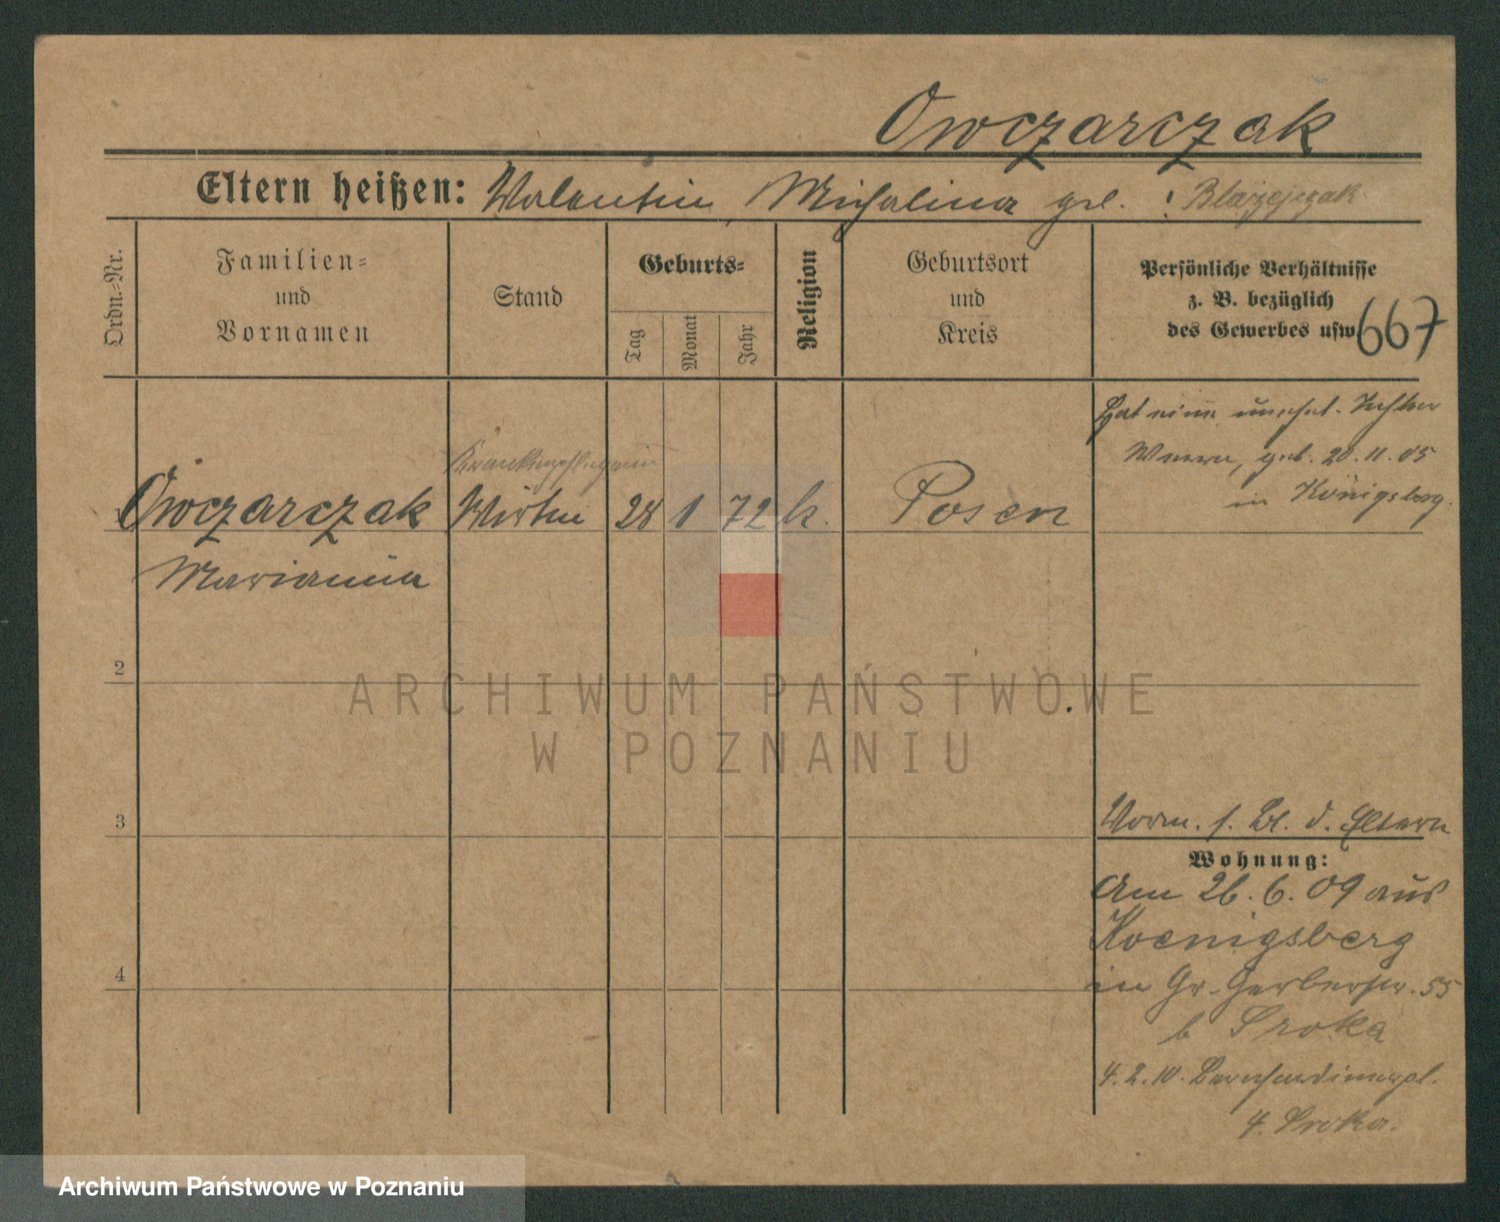 Owczarczak
Eltern heißen: Valentin, Michalina geb. : Blazejczak
Ordn.-Nr.
Familien-
und
Vornamen
Stand
Geburts-
Tag
Monat
Jahr
Religion
Geburtsort
und
Kreis
Persönliche Verhältnisse
z. B. bezüglich
des Gewerbes usw
667
Hat eine unehel. Tochter
geb. 20.11.05
in Königsberg.
Krankenpflegerin
Owczarczak Wirtin 28 1 72 k. Posen
Marianna
2
ARCHIWUM PAŃSTWOWE
W POZNANIU
3
Vorm. s. Bl. d. Eltern
Wohnung:
Am 26.6.09 aus
Koenigsberg
in Gr. Gerberstr. 55
b Sroka
4
4.2.10. Bernhardinerpl.
4. Sroka.
Archiwum Państwowe w Poznaniu